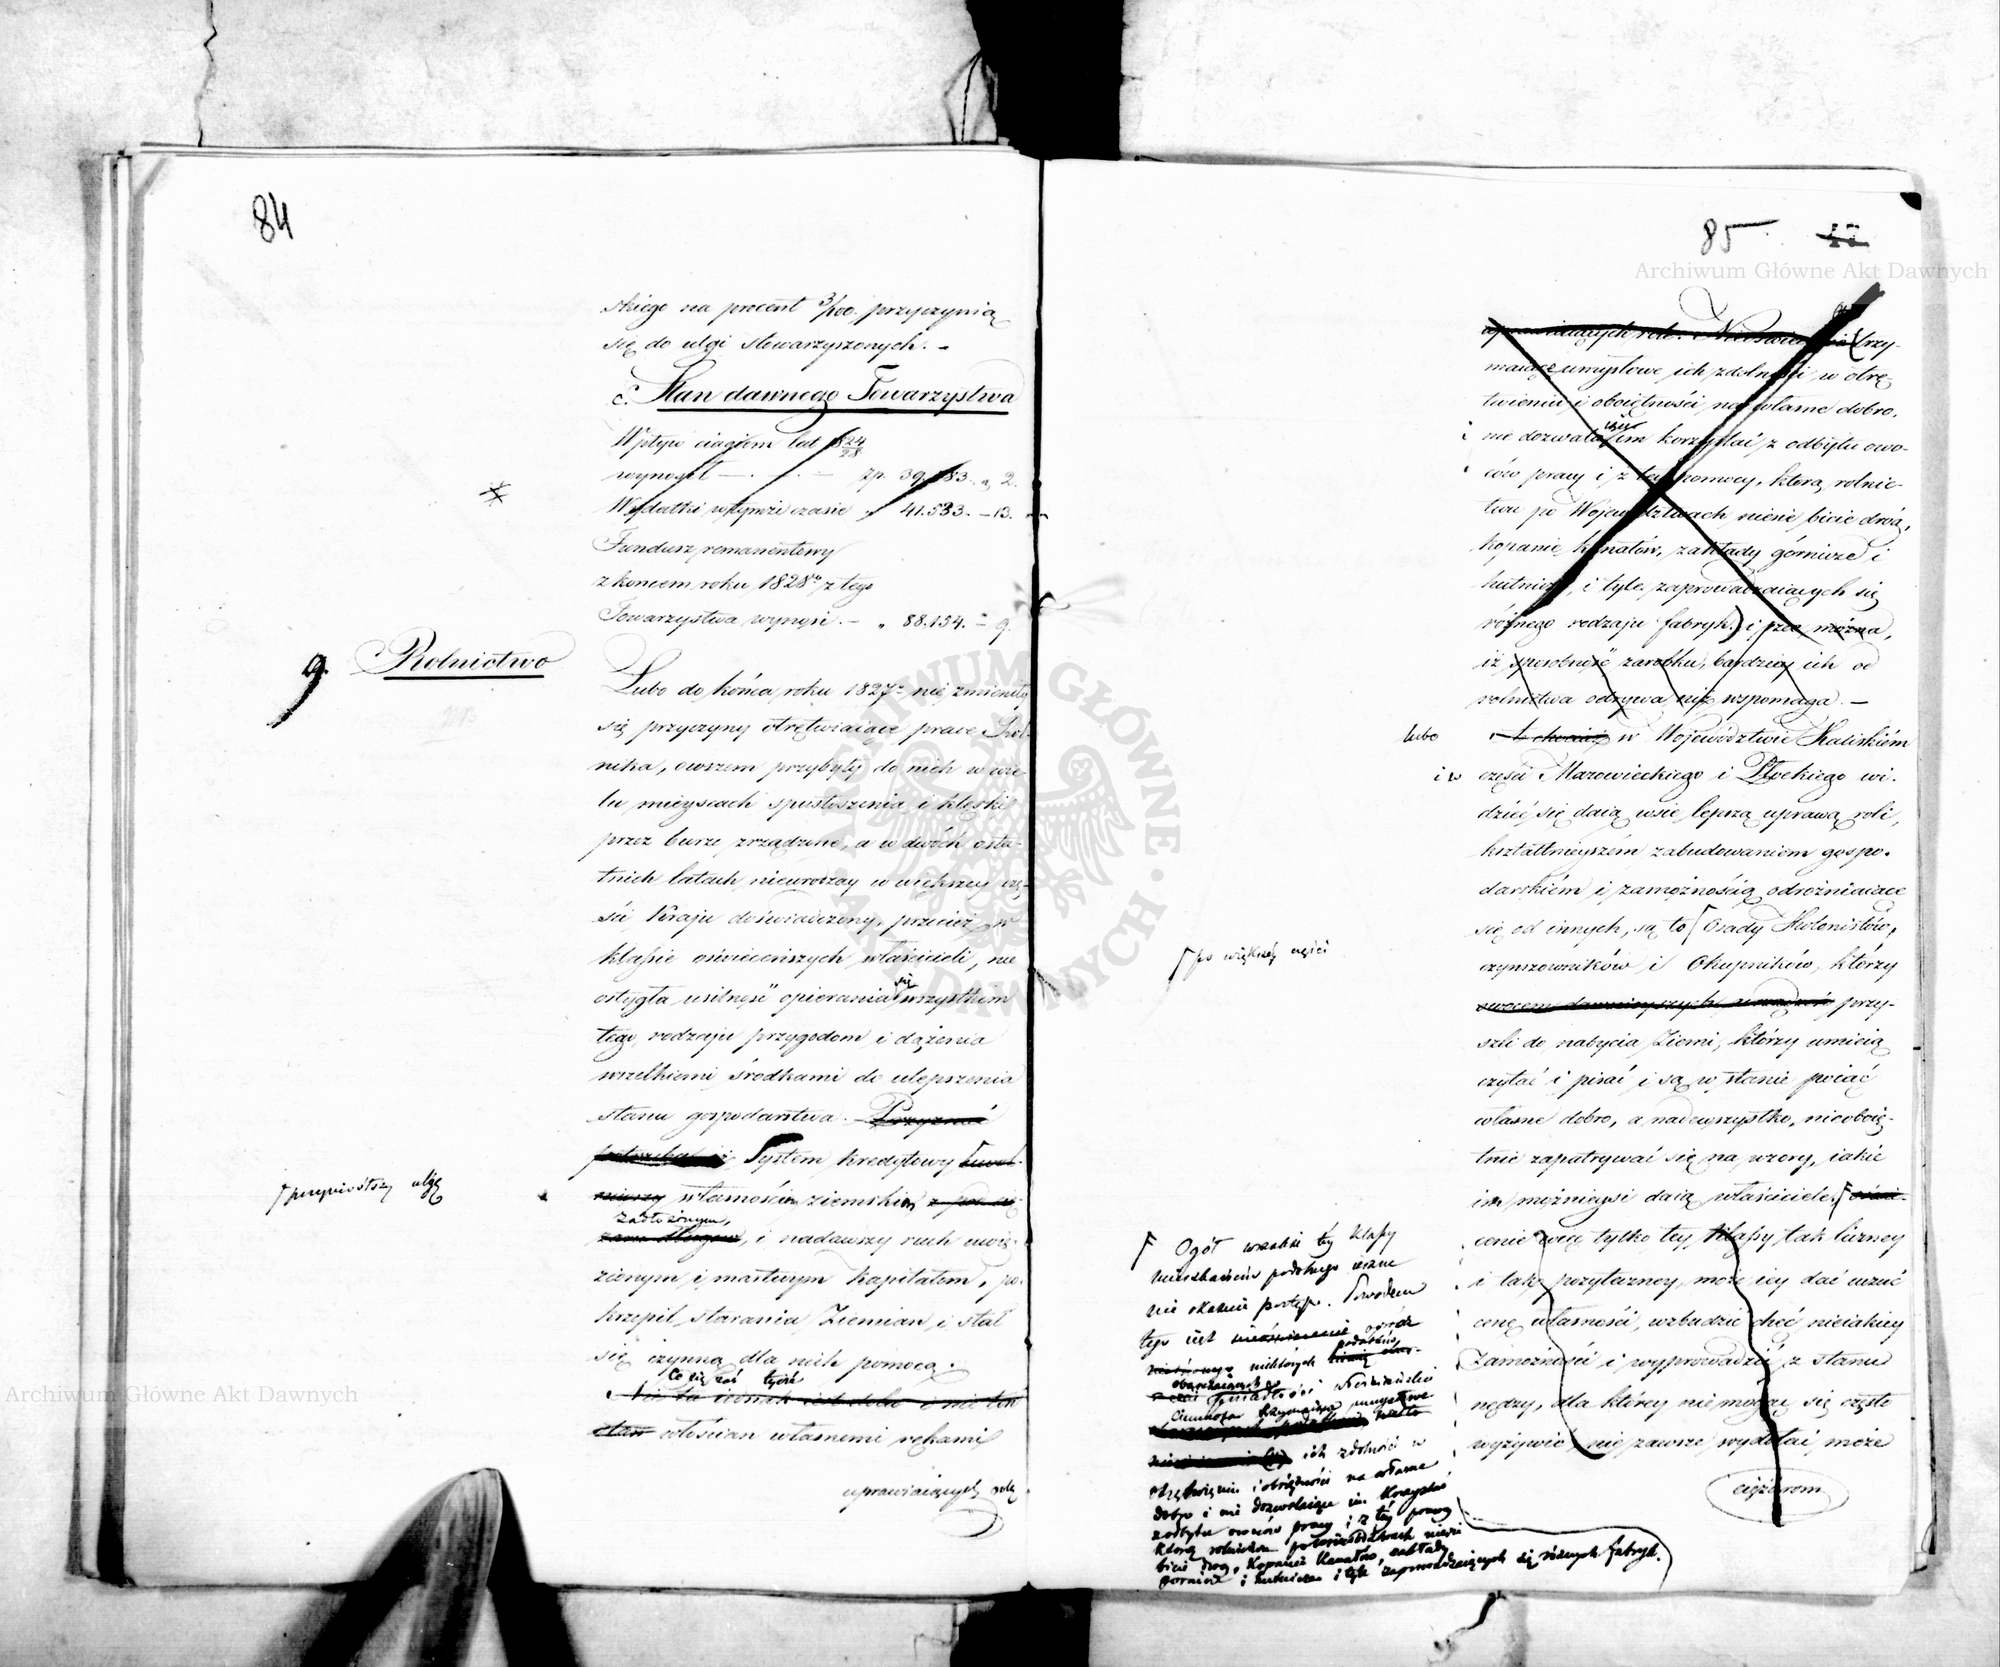 84
skiego na procent 3/100. przyczynią
się do ulgi stowarzyszonych. –
c. Stan dawnego Towarzystwa
Wpływ ciągiem lat 1824/28
wynosił — . — . — zp. 39.183. g. 2.
Wydatki w tymże czasie „ 41.533. – 13.
Fundusz remanentowy
z końcem roku 1828go z tego
Towarzystwa wynosi. – „ 88.154. – 9.
9. Rolnictwo
Lubo do końca roku 1827o nie zmieniły
się przyczyny otrętwiaiące prace Rol-
nika, owszem przybyły do nich w wie-
lu mieyscach spustoszenia i klęski
przez burze zrządzone, a w dwóch osta-
tnich latach nieurodzay w większey czę-
ści Kraju doświadczony, przecież w
klassie oświeceńszych właścicieli, nie
ostygła usilność opierania się wszystkim
tego rodzaju przygodom i dążenia
wszelkiemi środkami do ulepszenia
stanu gospodarstwa. – Przyznać
potrzeba iż System kredytowy uwol-
przyniósłszy ulgę
niwszy własnościom ziemskim
zadłożonym, i nadawszy ruch uwię-
zionym i martwym kapitałom, po-
krzepił starania Ziemian i stał
się czynną dla nich pomocą.
Co się zaś tycze
stan włościan własnemi rękami
uprawiaiących rolę
85 47
Archiwum Główne Akt Dawnych
uprawiaiących rolę. trzy-
maiące umysłowe ich zdolności w otrę-
twieniu i oboiętności na własne dobro,
nie dozwala im korzystać z odbytu owo-
ców pracy i z tey pomocy, którą rolnic-
twu po Województwach niesie bicie dróg,
kopanie kanałów, zakłady górnicze i
hutnicze, i tyle zaprowadzaiących się
różnego rodzaju fabryk. i rzec można,
iż sposobność zarobku, bardziey ich od
rolnictwa odrywa niż wspomaga. –
lubo A chociaż w Województwie Kaliskiém
i w części Mazowieckiego i Płockiego wi-
dzieć się daią wsie lepszą uprawą roli,
kształtnieyszém zabudowaniem gospo-
darskiém i zamożnością odróżniaiące
się od innych, są to Osady Kolonistów,
po większéy części
czynszowników i Okupników, którzy
owocem dawnieyszych przy-
szli do nabycia Ziemi, którzy umieią
czytać i pisać i są w stanie poiąć
własne dobro, a nadewszystko, nieoboię-
tnie zapatrywać się na wzory, iakie
im możnieysi daią właściciele. oświe-
cenie więc tylko tey klassy tak liczney
i tak pożyteczney, może iey dać uczuć
cenę własności, wzbudzić chęć nieiakiey
Zamożności i wyprowadzić z stanu
nędzy, dla którey nie mogąc się często
wyżywić, nie zawsze wydołać może
ciężarom
Ogół wszakże téy klassy
mieszkańców podobnego wcale
nie okazuie postępu. Powodem
tego iest nieoświecenie
podatków
obarczaiących
Ciemnota trzymaiąca umysłowe
ich zdolności w
otrętwieniu i oboiętności na własne
dobro i nie dozwalaiąca im korzystać
z odbytu owoców pracy i z téy pomocy
którą rolnictwu po Województwach niesie
bicie dróg, kopanie kanałów, zakłady
górnicze i hutnicze i tyle zaprowadzaiących się różnych fabryk.
ARCHIWUM GŁÓWNE AKT DAWNYCH
Archiwum Główne Akt Dawnych